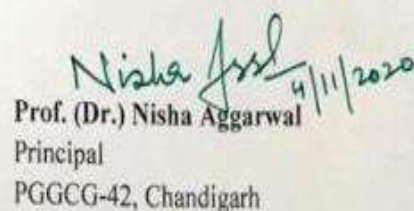 Nisha Aggl 4/11/2020
Prof. (Dr.) Nisha Aggarwal
Principal
PGGCG-42, Chandigarh